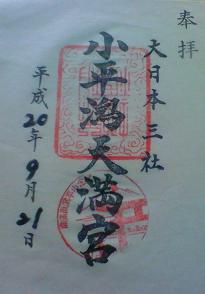 奉拝
大日本三社
小平潟天満宮
平成20年9月21日